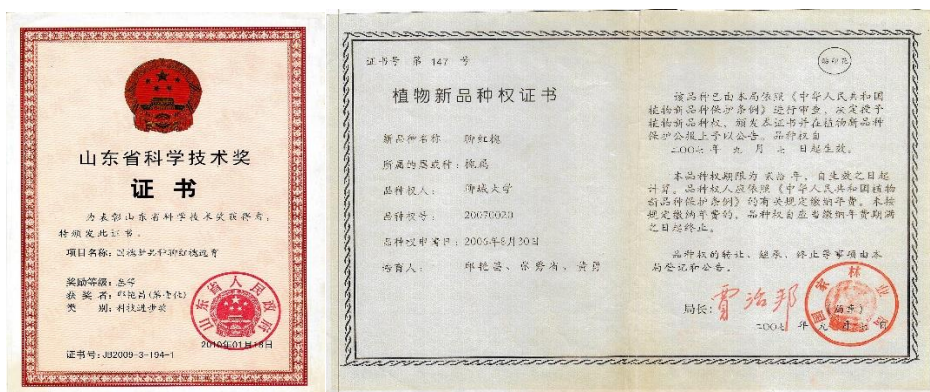 山东省科学技术奖
证书
为表彰山东省科学技术奖获得者,
特颁发此证书。
项目名称:国槐新品种聊红槐选育
奖励等级:叁等
获奖者:邱艳昌(第壹位)
类别:科技进步奖
山东省人民政府
2010年01月18日
证书号:JB2009-3-194-1
证书号 第 147 号
植物新品种权证书
新品种名称 聊红槐
所属的属或种:槐属
品种权人: 聊城大学
品种权号: 20070020
品种权申请日:2006年8月30日
培育人: 邱艳昌、张秀省、黄勇
该品种已由本局依照《中华人民共和国
植物新品种保护条例》进行审查,决定授予
植物新品种权,颁发本证书并在植物新品种
保护公报上予以公告。品种权自
二〇〇七 年 九 月 七 日起生效。
本品种权期限为 贰拾 年,自生效之日起
计算。品种权人应依照《中华人民共和国植物
新品种保护条例》的有关规定缴纳年费。未按
规定缴纳年费的,品种权自应当缴纳年费期满
之日起终止。
品种权的转让、继承、终止等事项由本
局登记和公告。
局长:贾治邦
二〇〇七 年 九 月 七 日